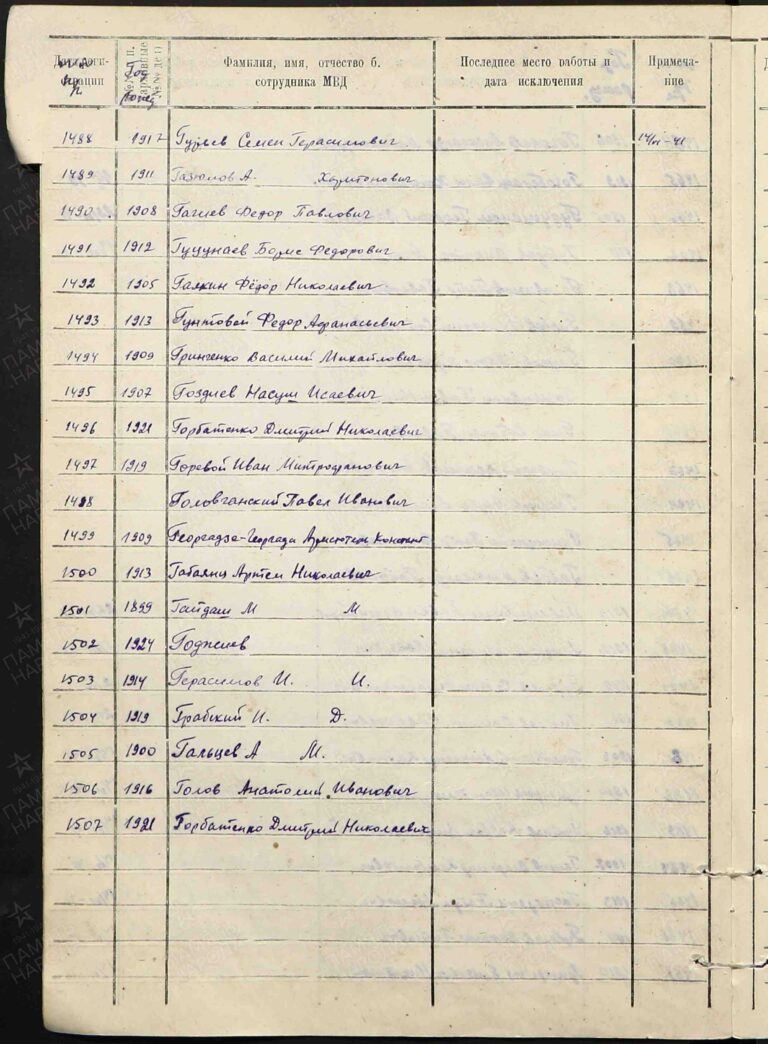 Фамилия, имя, отчество б. сотрудника МВД
Последнее место работы и дата исключения
Примечание
1488 1917 Гурьев Семен Герасимович
1489 1911 А. Харитонович
1490 1908 Гагиев Федор Павлович
1491 1912 Гуцунаев Борис Федорович
1492 1905 Галкин Фёдор Николаевич
1493 1913 Гунтовой Федор Афанасьевич
1494 1909 Гринченко Василий Михайлович
1495 1907 Гоздиев Насуш Исаевич
1496 1921 Горбатенко Дмитрий Николаевич
1497 1919 Горевой Иван Митрофанович
1498 Головчанский Павел Иванович
1499 1909 Георгадзе-Георгади Константин
1500 1913 Габаянц Артем Николаевич
1501 1899 Гайдаш М М
1502 1924 Годжиев
1503 1914 Герасимов И. И.
1504 1919 Грабский И. Д.
1505 1900 Гальцев А М.
1506 1916 Голов Анатолий Иванович
1507 1921 Горбатенко Дмитрий Николаевич